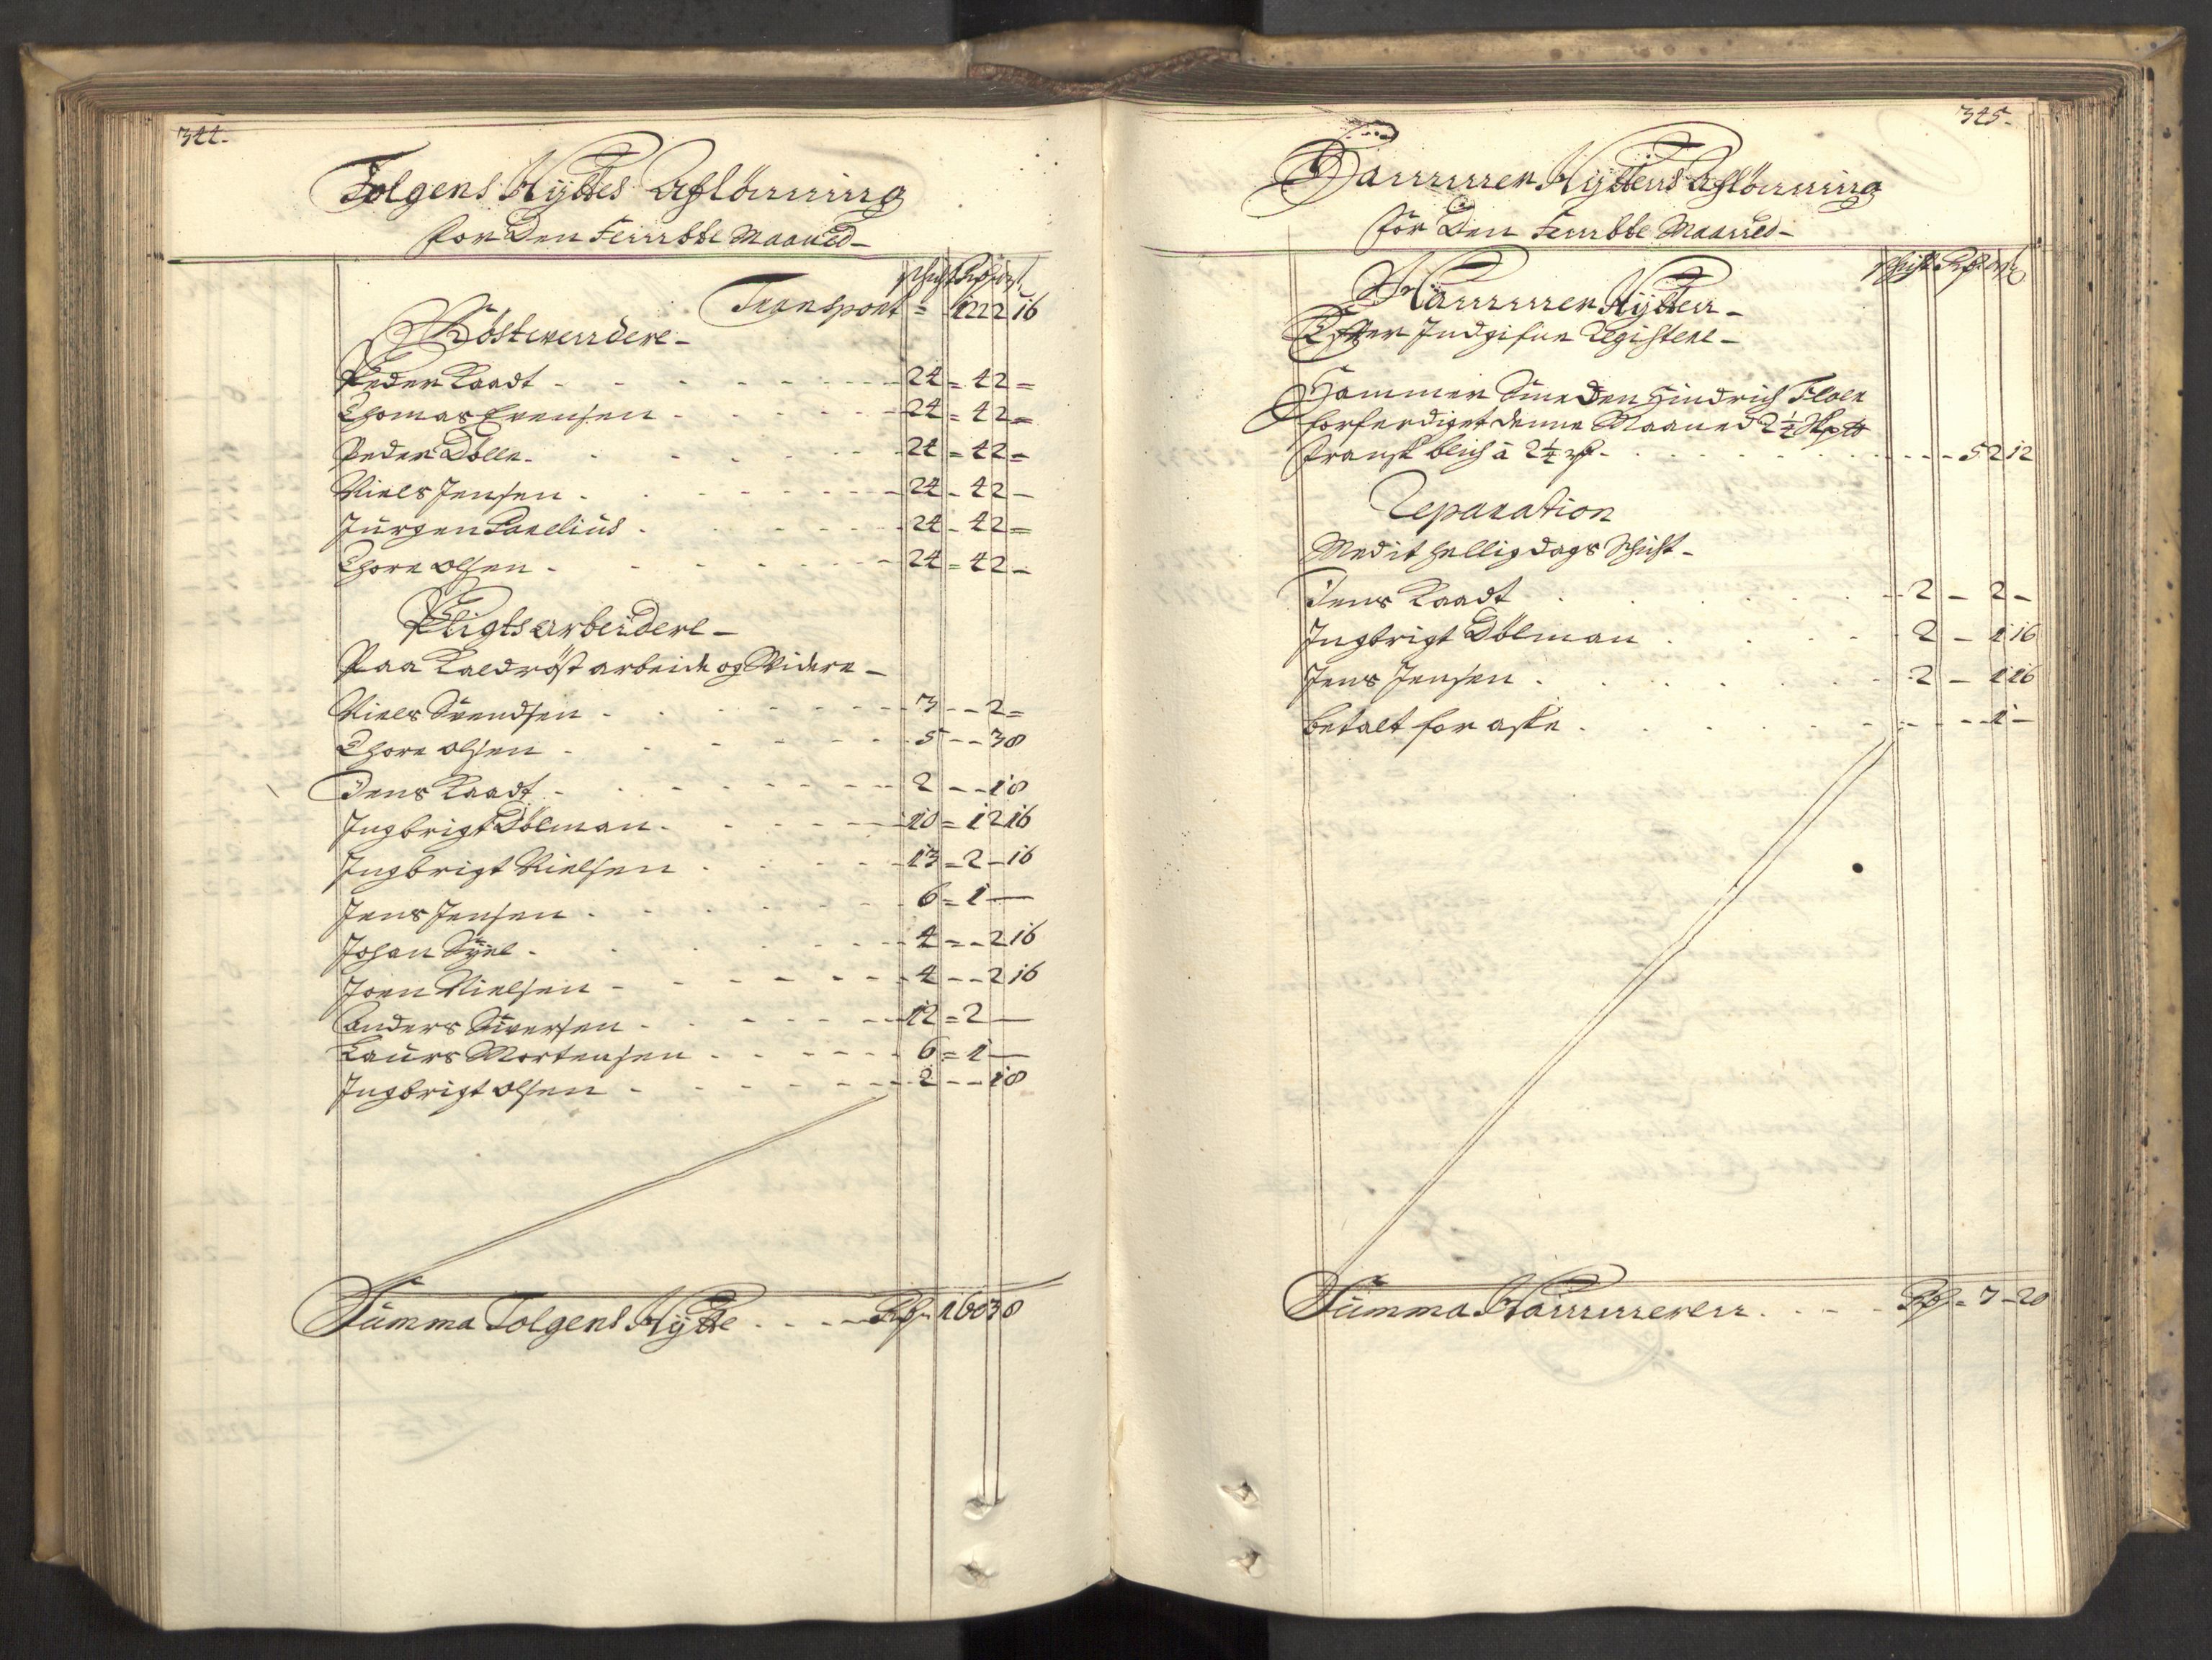 344.
Tolgens Hÿttes Aflönning
for Den Femtte Maaned-
Schicht Rdr ort ß
Transport = 122 2 16
Röstwendere-
Peder Kaadt - 24 = 4 2 =
Thomas Evensen - 24 = 4 2 =
Peder Dolle - 24 = 4 2 =
Niels Jensen - 24 - 4 2 -
Jürgen Parelius - 24 - 4 2 =
Thore olsen - 24 = 4 2 -
Pligtsarbeidere-
Paa Kaldröst arbeide og Videre-
Niels Svendsen - 3 - - 2 =
Thore olsen - 5 - - 3 8
Jens Kaadt - 2 - - 1 8
Ingbrigt Dölman - 10 = 1 2 16
Ingbrigt Nielsen - 13 = 2 - 16
Jens Jensen - 6 = 1 -
Johan - 4 = - 2 16
Joen Nielsen - 4 - - 2 16
Anders Siversen - 12 = 2 -
Laurs Mortensen - 6 = 1 -
Ingbrigt olsen - 2 - - 1 8
Summa Tolgens Hÿtte - Rdr 160 3 8
345.
Hammer Hÿttens Aflönning
for Den Femtte Maaned-
Schicht Rdr ort ß
Hammer Hÿtten-
Efter Indgifne Register-
Hammer Smeden Hindrich Floer
forferdiget denne Maaned 2 1/4
fransk blich à 2 1/4 - - 5 2 12
Reparation
Med it helligdags Schicht-
Jens Kaadt - 2 - 2 -
Ingbrigt Dölman - 2 - 1 16
Jens Jensen - 2 - 1 16
betalt for aske - - - 1 -
Summa Hammeren - Rdr = 7 - 20